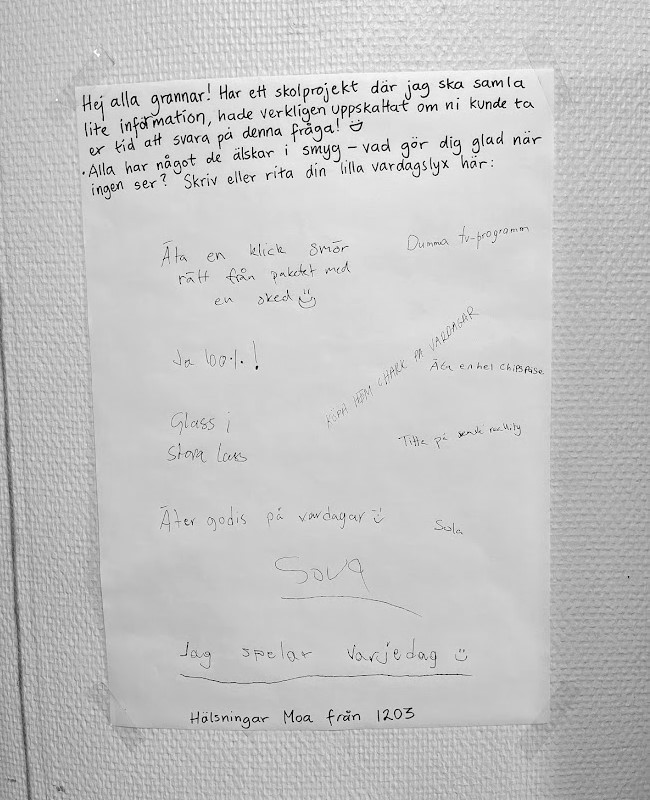 Hej alla grannar! Har ett skolprojekt där jag ska samla
lite information, hade verkligen uppskattat om ni kunde ta
er tid att svara på denna fråga! :)
• Alla har något de älskar i smyg – vad gör dig glad när
ingen ser? Skriv eller rita din lilla vardagslyx här:
Äta en klick smör
rätt från paketet med
en sked :)
Dumma tv-programm
Ja 100%!
KÖPA HEM CHARK PÅ VARDAGAR
Äta en hel chipspåse
Glass i
stora lass
Titta på svensk reality
Äter godis på vardagar :)
Sola
Sova
Jag spelar varjedag :)
Hälsningar Moa från 1203